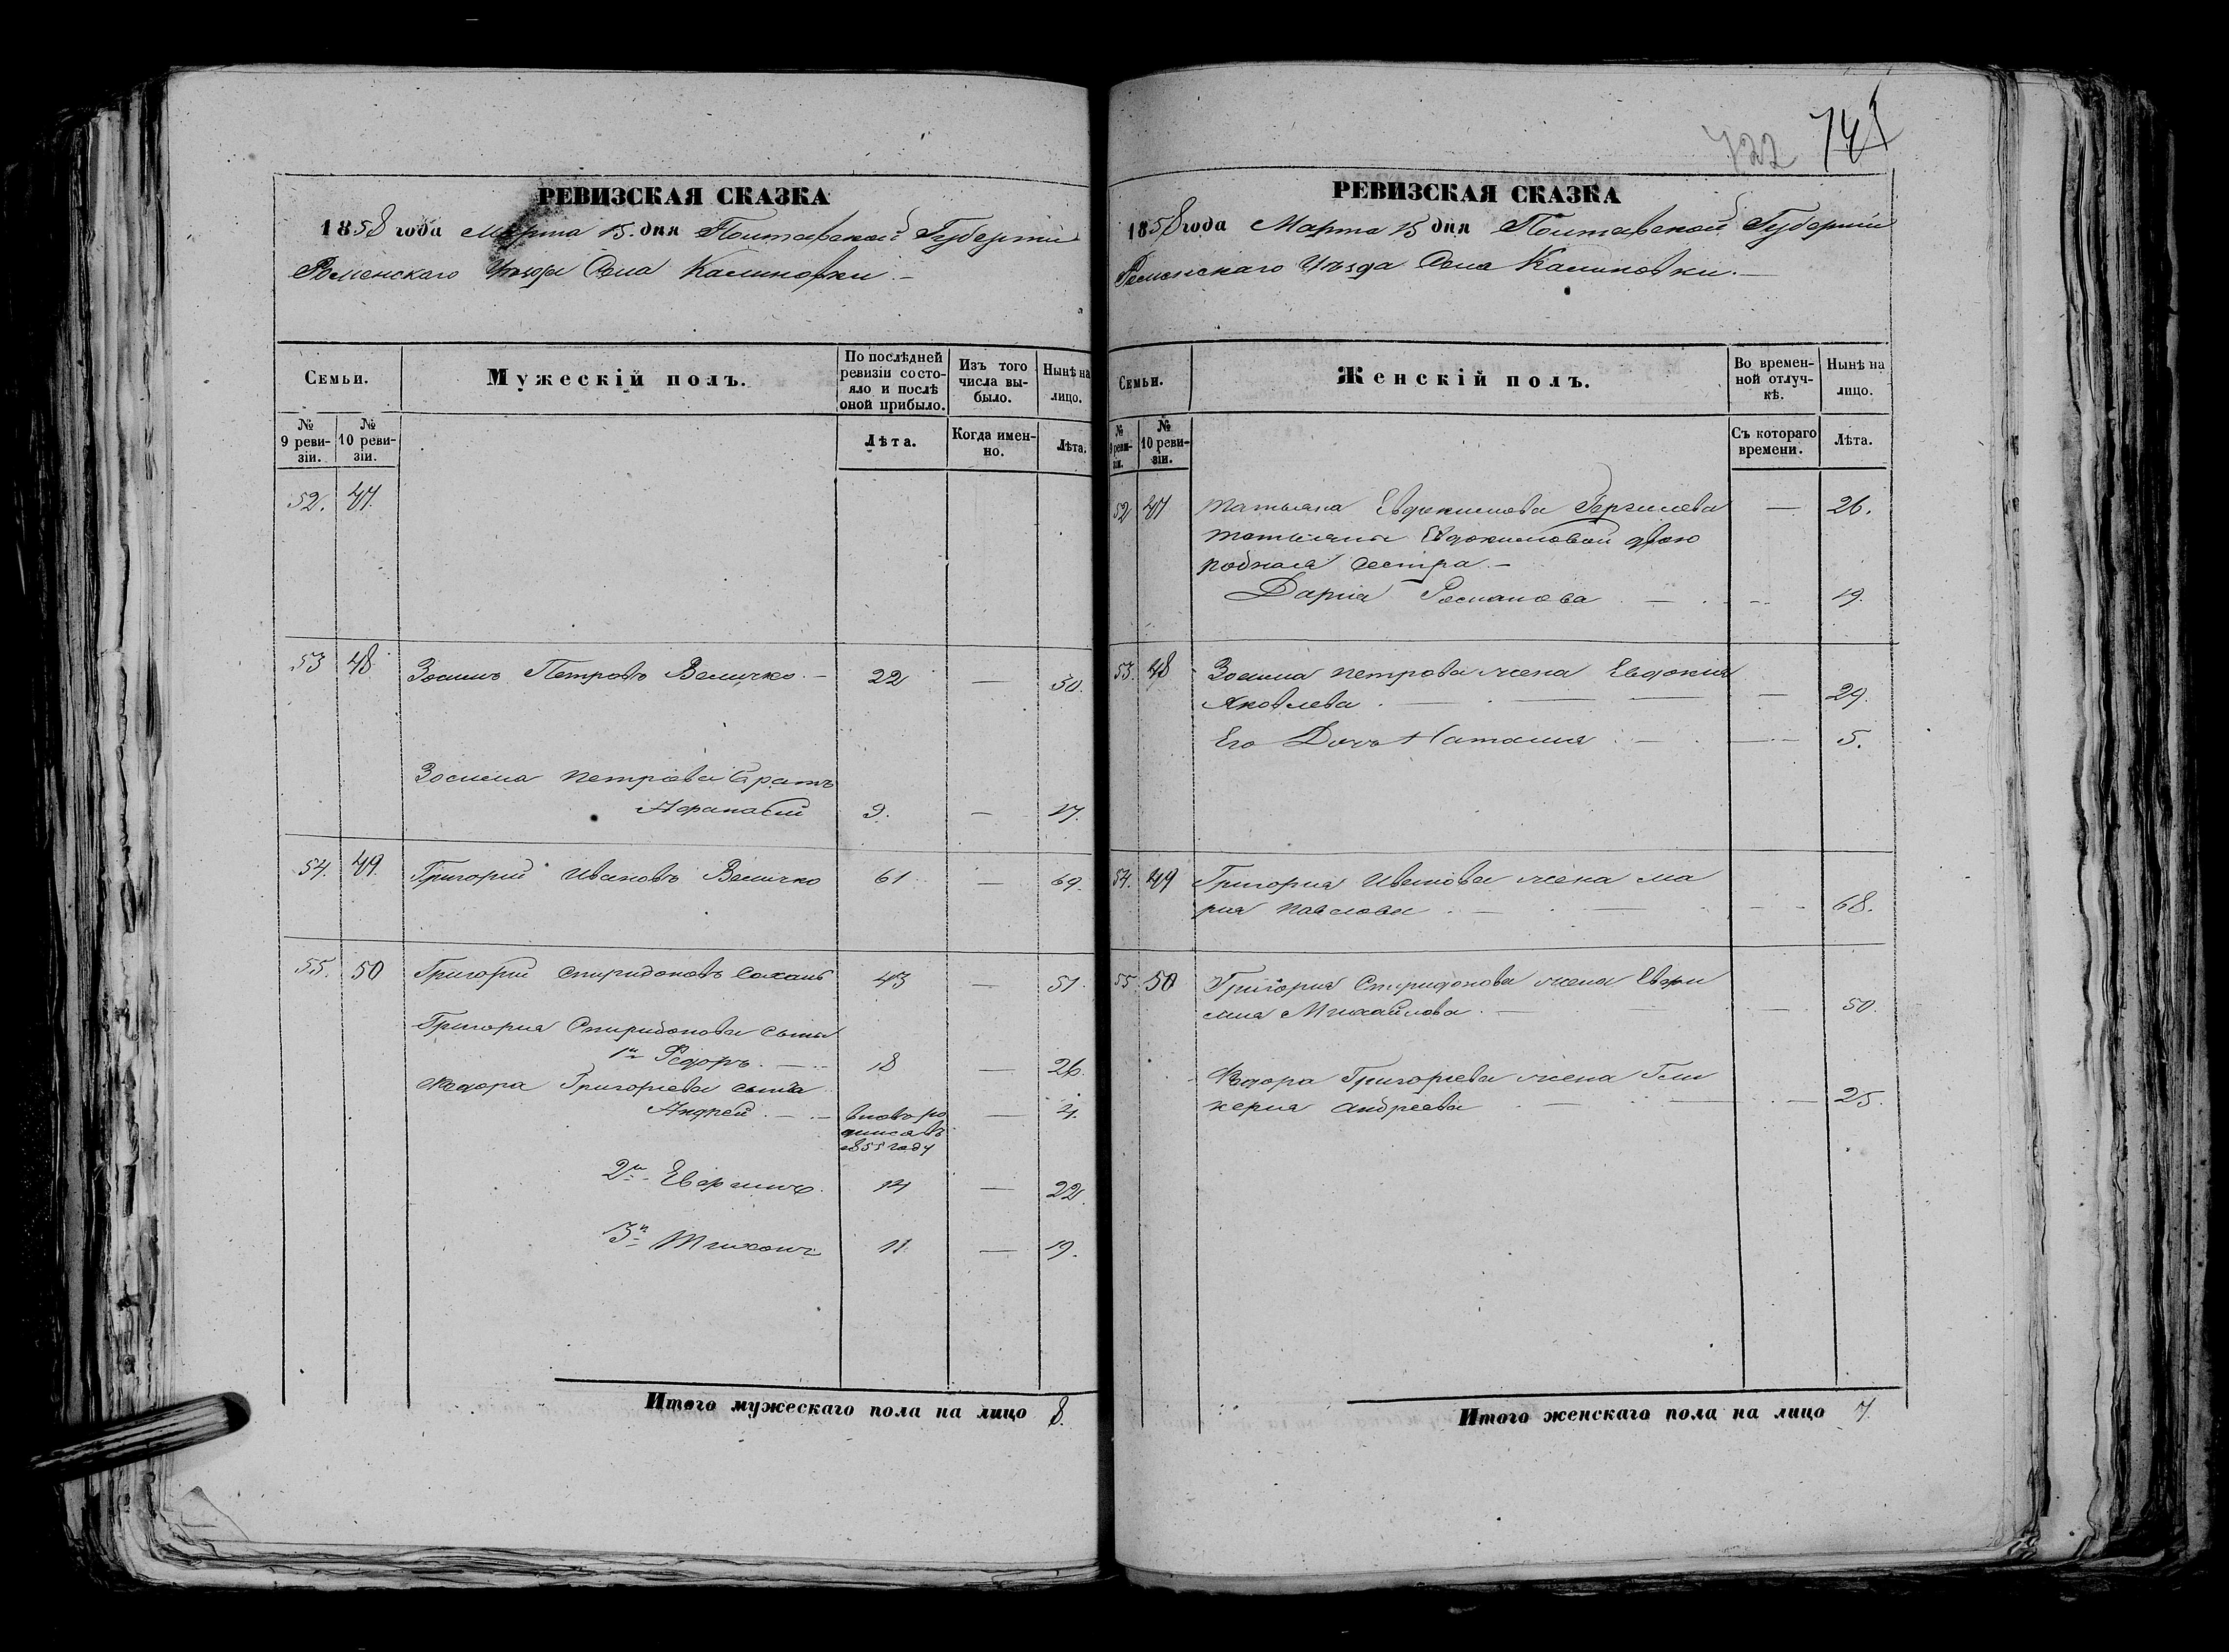 РЕВИЗСКАЯ СКАЗКА
1858 года Марта 15. дня Полтавской Губернии
Роменскаго Уѣзда Села Калиновки. —
Семьи.
Мужескій полъ.
По послѣдней ревизіи состояло и послѣ оной прибыло.
Изъ того числа выбыло.
Нынѣ на лицо.
№ 9 ревизіи.
№ 10 ревизіи.
Лѣта.
Когда именно.
Лѣта.
52. 47.
53 48 Зосимъ Петровъ Величко. — 22 — 30.
Зосима Петрова братъ
Афанасій 9. — 17.
54. 49. Григорій Ивановъ Величко 61 — 69.
55. 50 Григорій Спиридоновъ 43 — 51.
Григорія Спиридонова сыны
1й Федоръ. — 18 — 26.
Федора Григорьева сынъ
Андрей. — вновь ро — 4.
1855 году
2й 14 — 22.
3й Тихонъ 11 — 19.
Итого мужескаго пола на лицо 8.
722 741
РЕВИЗСКАЯ СКАЗКА
1858 года Марта 15 дня Полтавской Губернии
Роменскаго Уѣзда Села Калиновки. —
Семьи.
Женскій полъ.
Во временной отлучкѣ.
Нынѣ на лицо.
№ 9 ревизіи.
№ 10 ревизіи.
Съ котораго времени.
Лѣта.
52 47 Татьяна Евдокимова — 26.
Татьяны Евдокимовой двою
родная сестра. —
Дарія Романова — 19.
53. 48 Зосима Петрова жена Евдокія
Яковлева. — 29.
Его Дочь Наталия — 5.
54. 49 Григорія Иванова жена Ма
рия Павлова — 68.
55. 50 Григорія Спиридонова жена Евфи
мия Михайлова. — 50.
Федора Григорьева жена Гли
керия Андреева — 25.
Итого женскаго пола на лицо 7.